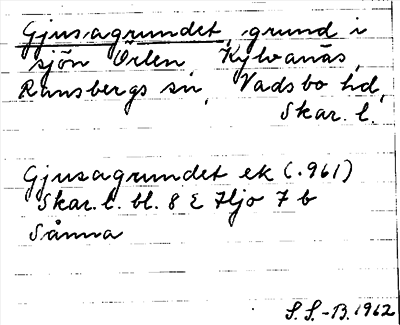 Gjusagrundet, grund i
sjön Örlen, Kylvanäs,
Ransbergs sn, Vadsbo hd,
Skar. l.
Gjusagrundet ek (.961)
Skar. l. bl. 8 E Hjo 7 b
Sånna
S.S.-B. 1962